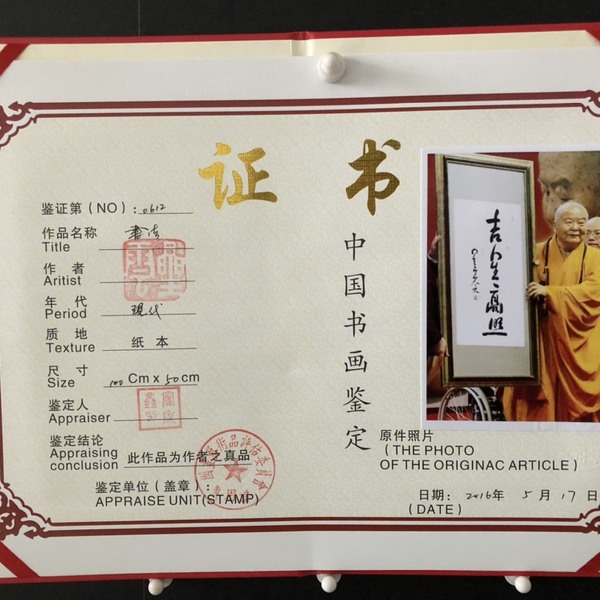 证书
中国书画鉴定
鉴证第（NO）：0612
作品名称 書法
Title
作者
Aritist
年代
Period 现代
质地
Texture 纸本
尺寸
Size 100 Cm x 50 cm
鉴定人
Appraiser
鉴定结论
Appraising
conclusion 此作品为作者之真品
鉴定单位（盖章）：
APPRAISE UNIT(STAMP)
吉星高照
原件照片
（THE PHOTO
OF THE ORIGINAC ARTICLE）
日期： 2016年 5月17日
(DATE)